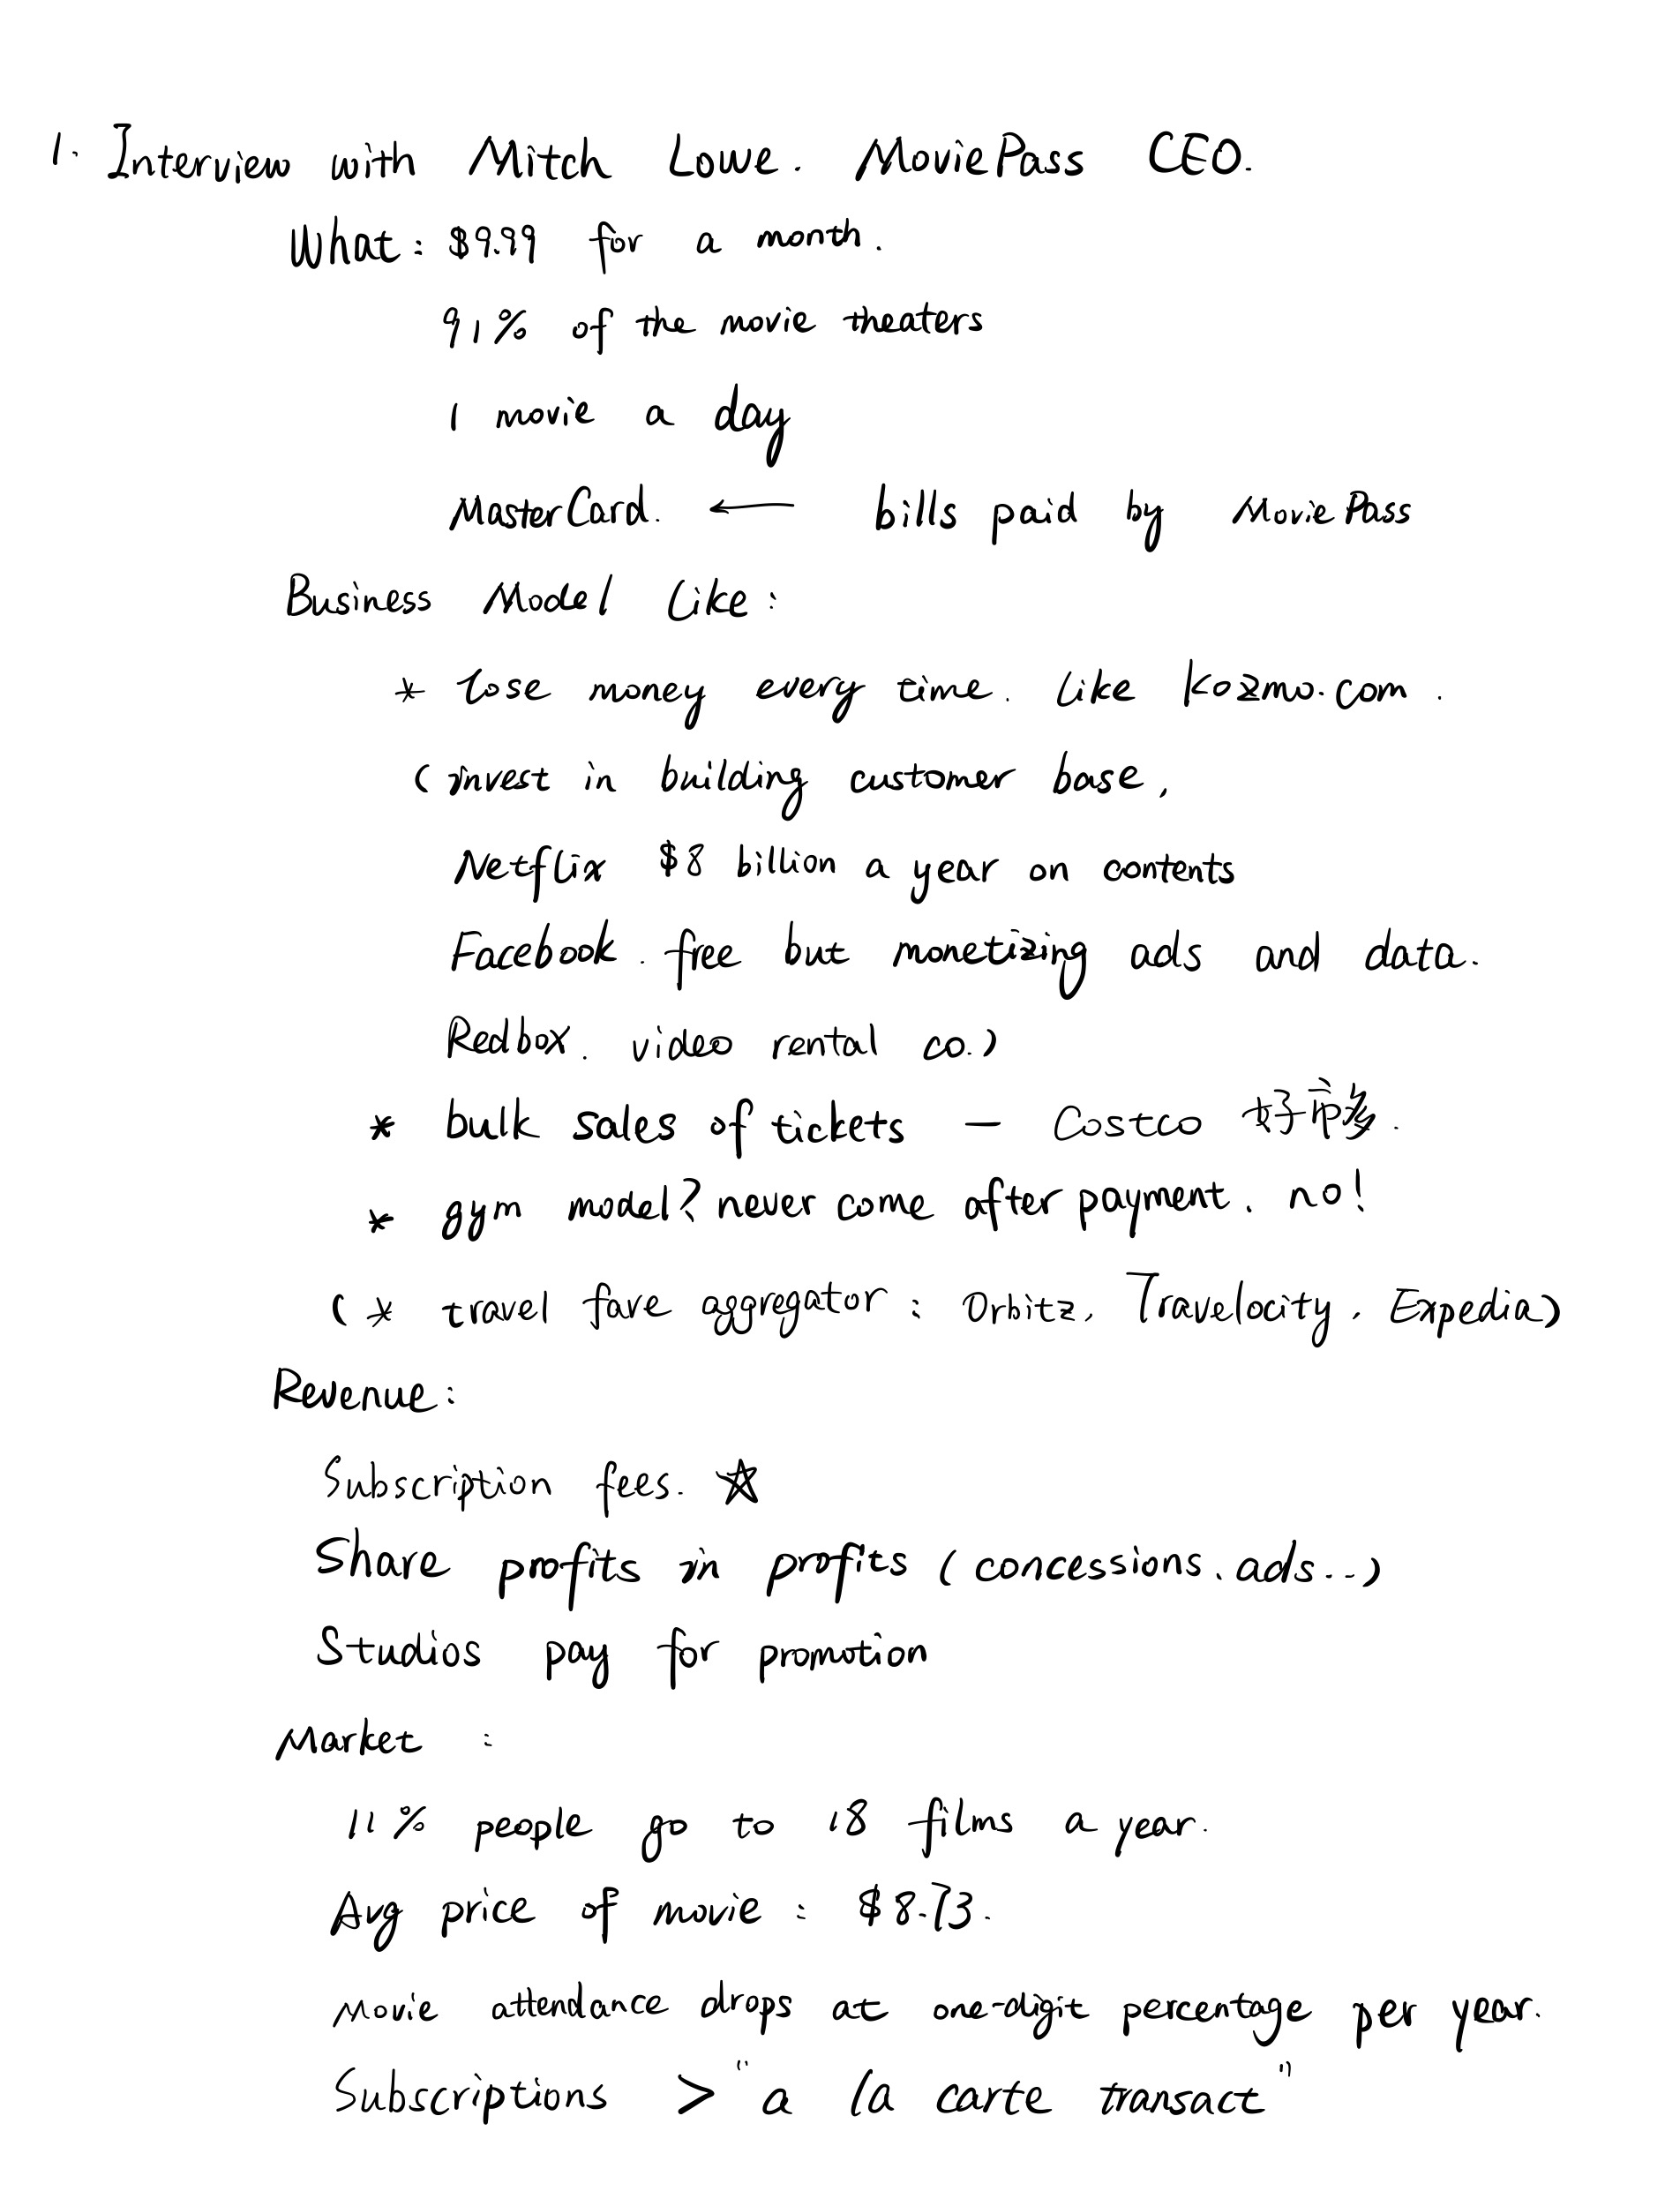 1. Interview with Mitch Lowe. MoviePass CEO.
What: $9.99 for a month.
91% of the movie theaters
1 movie a day
MasterCard. ← bills paid by MoviePass
Business Model Like:
* lose money every time. Like Kozmo.com.
(invest in building customer base,
Netflix $8 billion a year on contents
Facebook. free but monetizing ads and data.
Redbox. video rental co.)
* bulk sales of tickets — Costco 好市多.
* gym model? never come after payment. no!
(* travel fare aggregator: Orbitz, Travelocity, Expedia)
Revenue:
Subscription fees. ☆
Share profits in profits (concessions, ads...)
Studios pay for promotion
Market :
11% people go to 18 films a year.
Avg price of movie: $8.73.
Movie attendance drops at one-digit percentage per year.
Subscriptions > "a la carte transact"